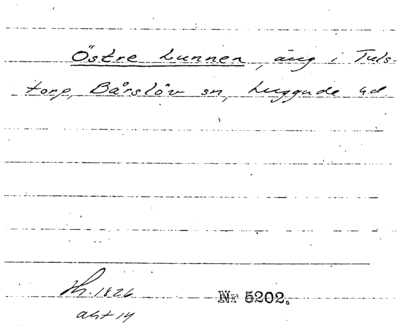 Östre Lunnen, äng i Tuls-
torp, Bårslöv sn, Luggude hd
h. 1826
akt 14
Nr 5202.